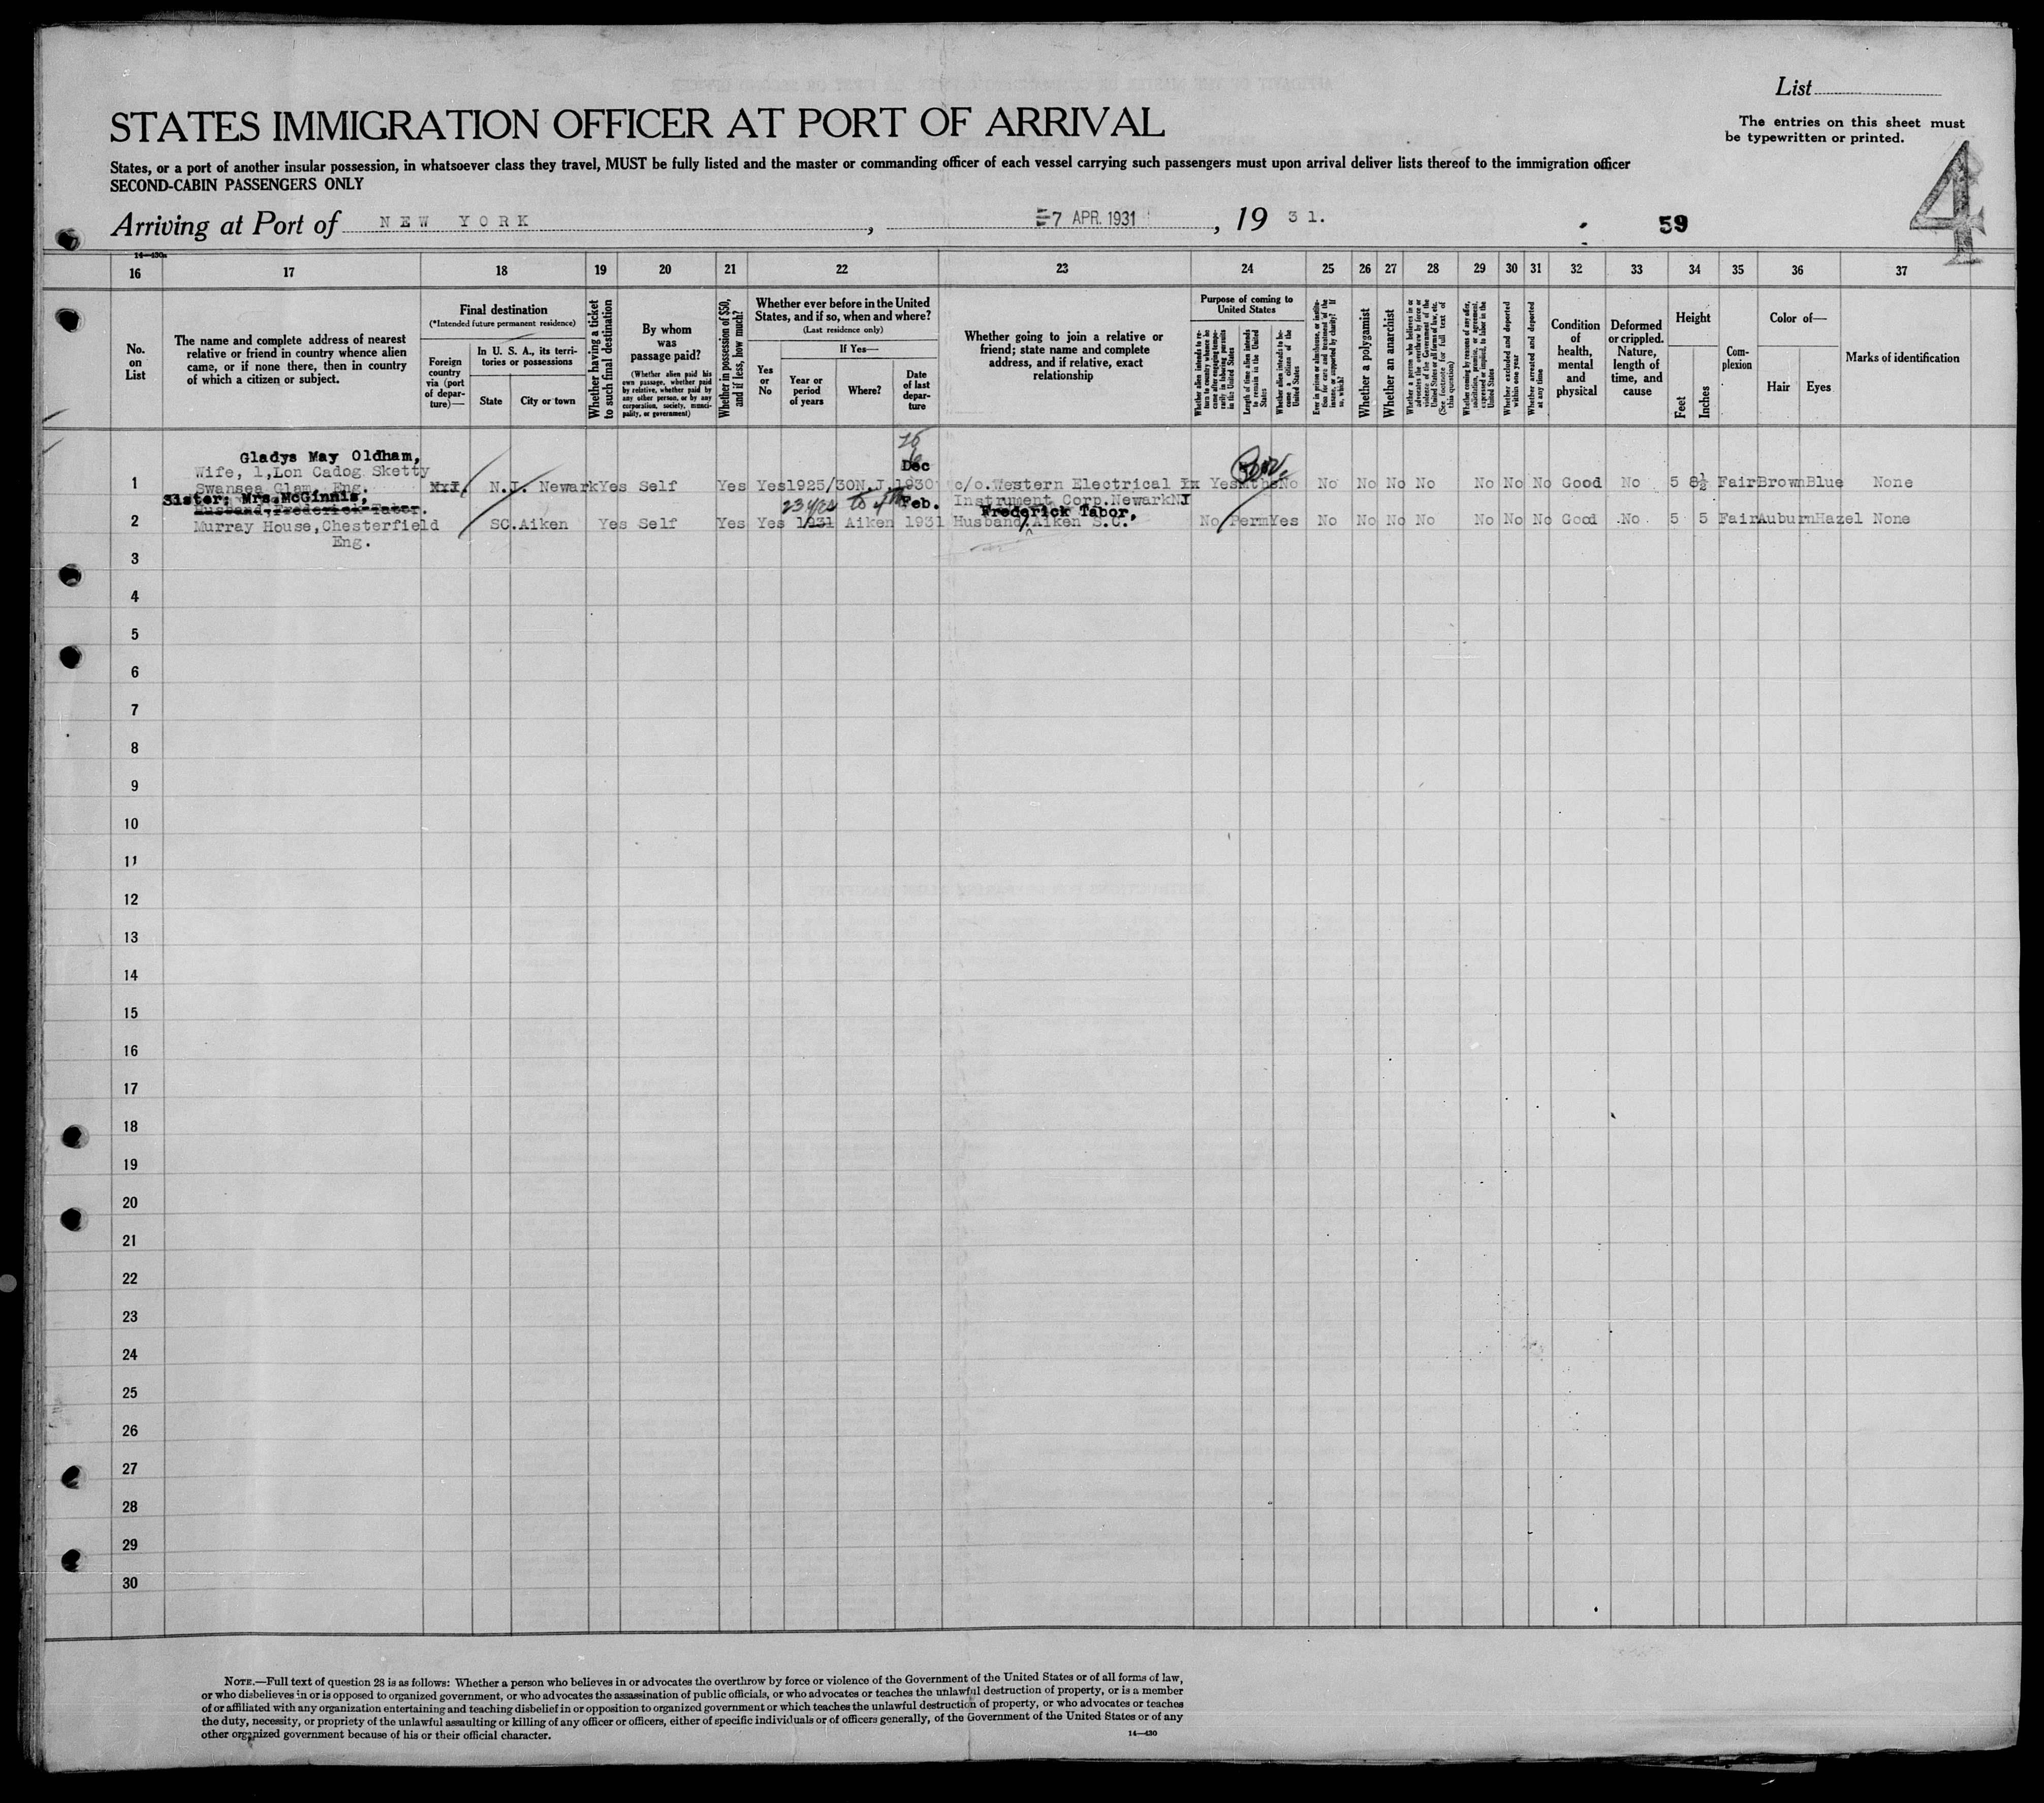 List
STATES IMMIGRATION OFFICER AT PORT OF ARRIVAL
The entries on this sheet must
be typewritten or printed.
States, or a port of another insular possession, in whatsoever class they travel, MUST be fully listed and the master or commanding officer of each vessel carrying such passengers must upon arrival deliver lists thereof to the immigration officer
SECOND-CABIN PASSENGERS ONLY
4
Arriving at Port of NEW YORK, 7 APR. 1931, 19 31.
59
14—430a
16 17 18 19 20 21 22 23 24 25 26 27 28 29 30 31 32 33 34 35 36 37
No.
on
List
The name and complete address of nearest
relative or friend in country whence alien
came, or if none there, then in country
of which a citizen or subject.
Final destination
(*Intended future permanent residence)
Foreign
country
via (port
of depar-
ture)—
In U. S. A., its terri-
tories or possessions
State
City or town
Whether having a ticket
to such final destination
By whom
was
passage paid?
(Whether alien paid his
own passage, whether paid
by relative, whether paid by
any other person, or by any
corporation, society, munici-
pality, or government)
Whether in possession of $50,
and if less, how much?
Whether ever before in the United
States, and if so, when and where?
(Last residence only)
Yes
or
No
If Yes—
Year or
period
of years
Where?
Date
of last
depar-
ture
Whether going to join a relative or
friend; state name and complete
address, and if relative, exact
relationship
Purpose of coming to
United States
Whether alien intends to re-
turn to country whence he
came after engaging tempo-
rarily in laboring pursuits
in the United States
Length of time alien intends
to remain in the United
States
Whether alien intends to be-
come a citizen of the
United States
Ever in prison or almshouse, or institu-
tion for care and treatment of the
insane, or supported by charity? If
so, which?
Whether a polygamist
Whether an anarchist
Whether a person who believes in or
advocates the overthrow by force or
violence of the Government of the
United States or all forms of law, etc.
(See footnote for full text of
this question)
Whether coming by reasons of any offer,
solicitation, promise, or agreement,
expressed or implied, to labor in the
United States
Whether excluded and deported
within one year
Whether arrested and deported
at any time
Condition
of
health,
mental
and
physical
Deformed
or crippled.
Nature,
length of
time, and
cause
Height
Feet
Inches
Com-
plexion
Color of—
Hair
Eyes
Marks of identification
Gladys May Oldham,
Wife, 1,Lon Cadog Sketty
Swansea Glam. Eng.
1 N.J. Newark Yes Self Yes Yes 1925/30 N.J. Dec 1930 c/o.Western Electrical Yes No No No No No No No No Good No 5 8½ Fair Brown Blue None
Instrument Corp.Newark NJ
Sister: Mrs.McGinnis,
Husband,Frederick Tabor.
2 Murray House,Chesterfield SC. Aiken Yes Self Yes Yes 23 yrs to 1931 Aiken Feb. 1931 Husband, Frederick Tabor, Aiken S.C. No Perm Yes No No No No No No No Good No 5 5 Fair Auburn Hazel None
Eng.
3
4
5
6
7
8
9
10
11
12
13
14
15
16
17
18
19
20
21
22
23
24
25
26
27
28
29
30
NOTE.—Full text of question 28 is as follows: Whether a person who believes in or advocates the overthrow by force or violence of the Government of the United States or of all forms of law,
or who disbelieves in or is opposed to organized government, or who advocates the assassination of public officials, or who advocates or teaches the unlawful destruction of property, or is a member
of or affiliated with any organization entertaining and teaching disbelief in or opposition to organized government or which teaches the unlawful destruction of property, or who advocates or teaches
the duty, necessity, or propriety of the unlawful assaulting or killing of any officer or officers, either of specific individuals or of officers generally, of the Government of the United States or of any
other organized government because of his or their official character.
14—430